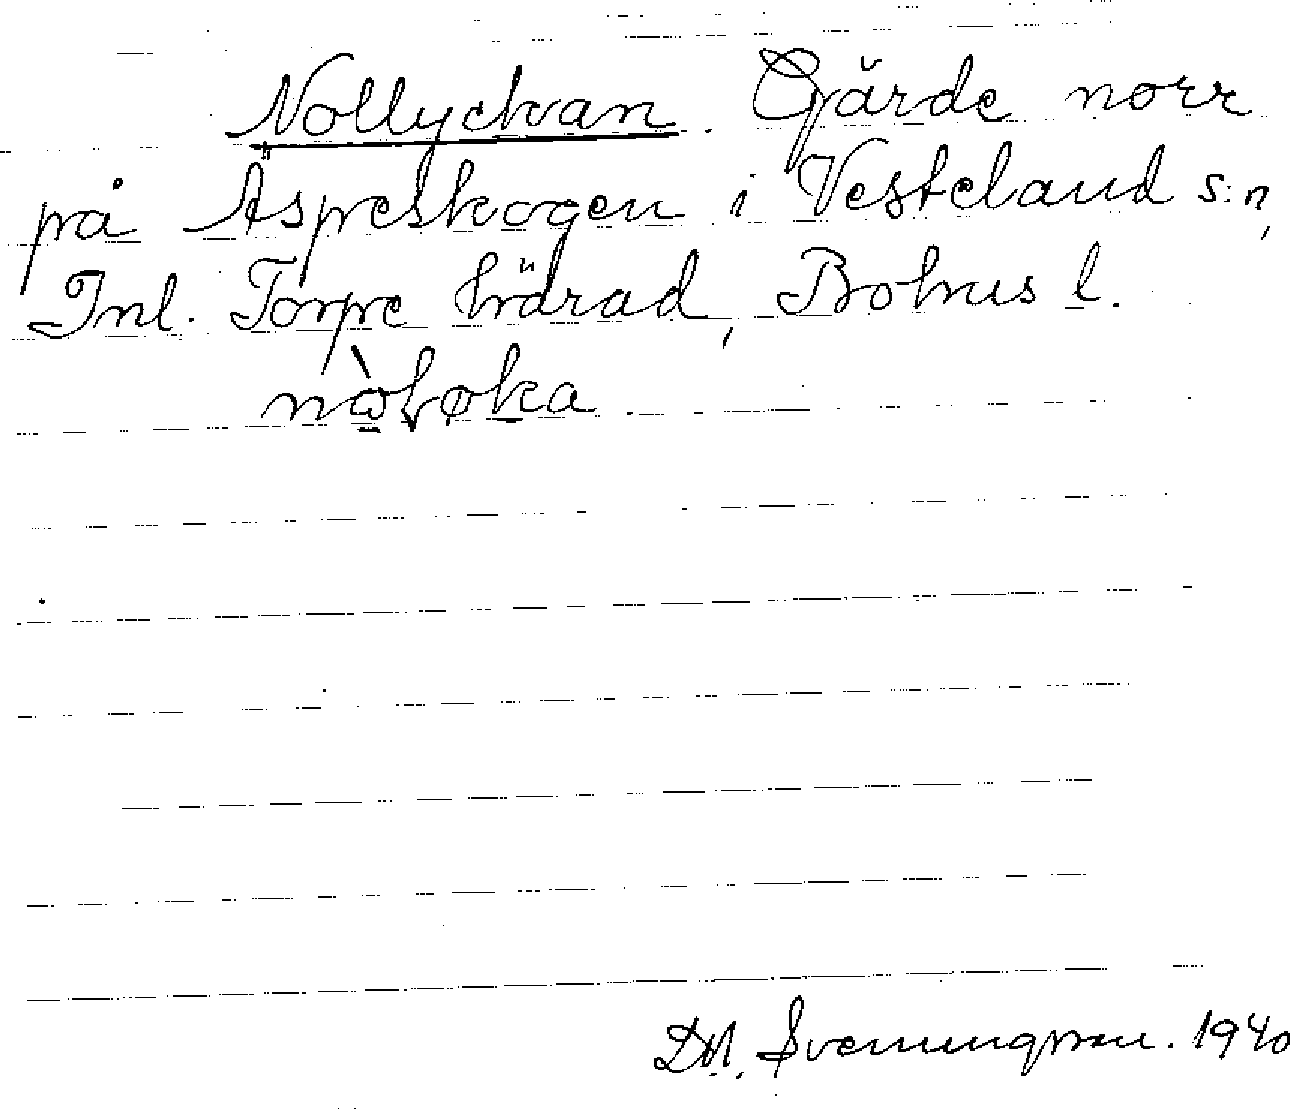 Nollyckan. Gärde norr
på Äspeskogen i Vesteland s:n,
Inl. Torpe härad, Bohus l.
D.M. Svenungsson. 1940